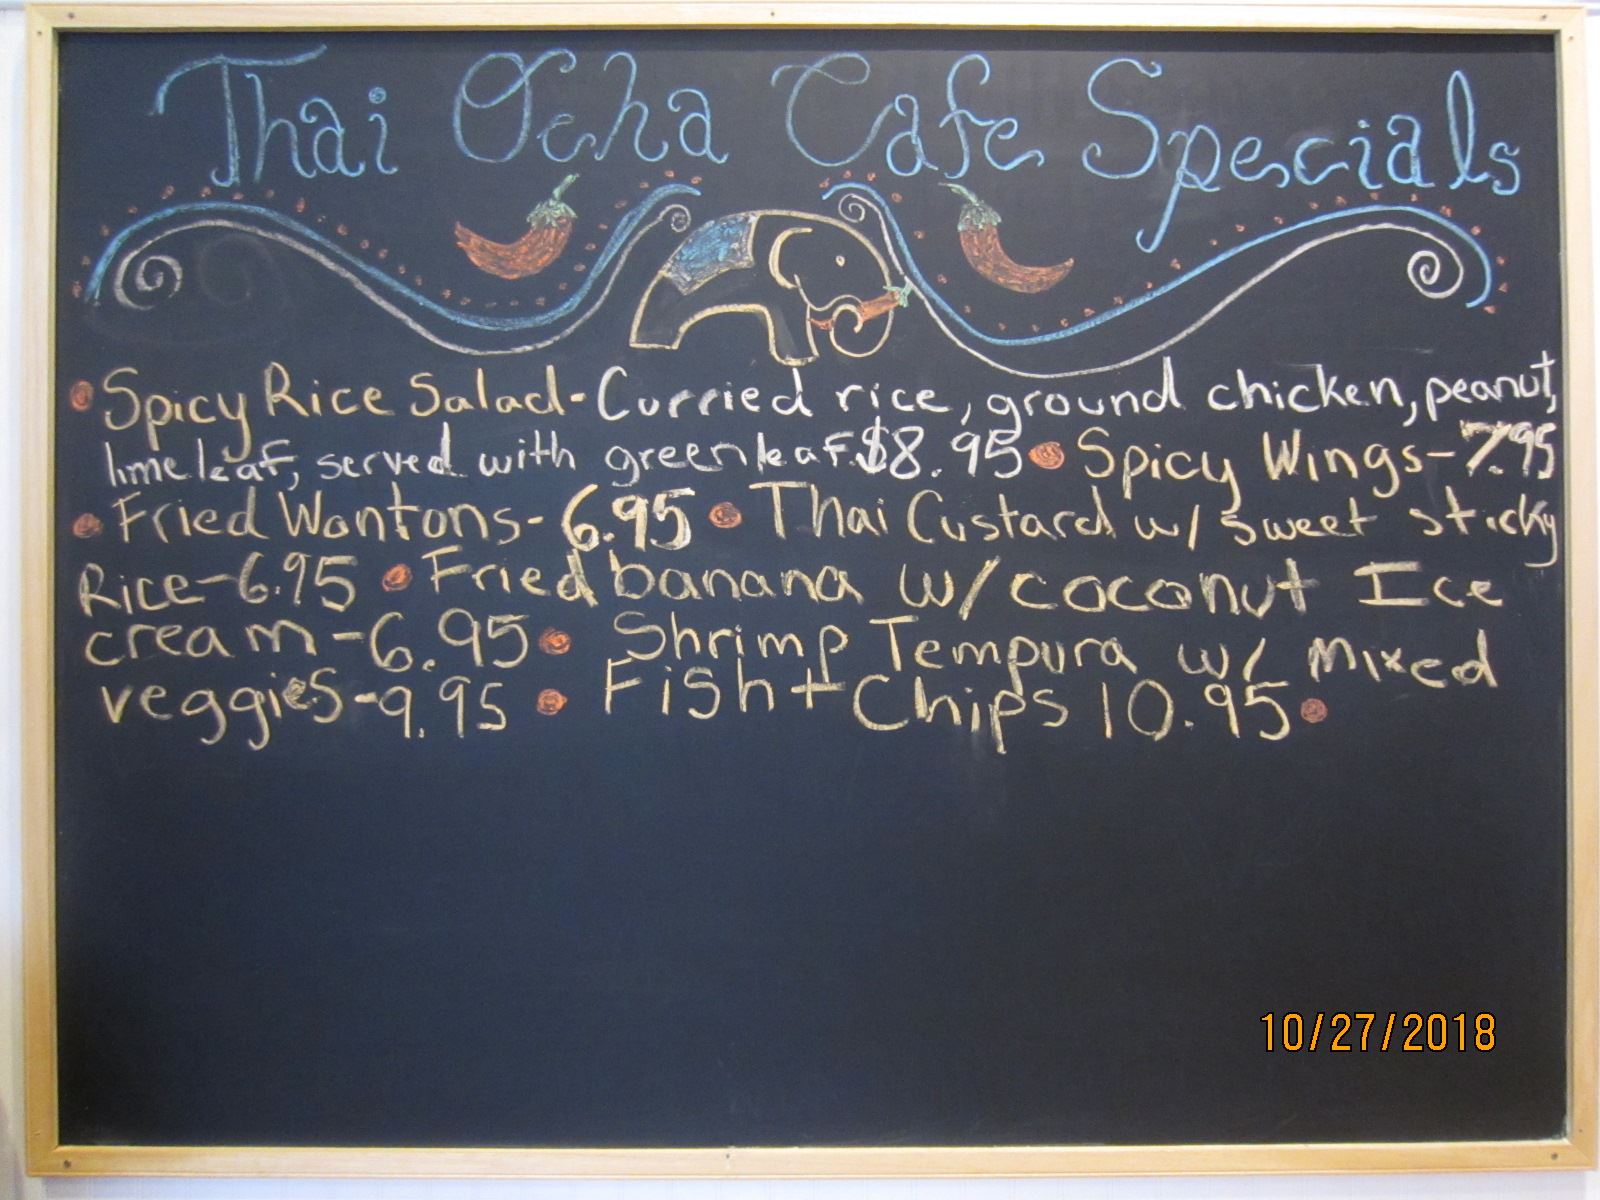 Thai Ocha Cafe Specials
Spicy Rice Salad-Curried rice, ground chicken, peanut,
lime leaf, served with green leaf. $8.95 Spicy Wings-7.95
Fried Wontons-6.95 Thai Custard w/ sweet sticky
Rice-6.95 Fried banana w/coconut Ice
cream-6.95 Shrimp Tempura w/ mixed
veggies-9.95 Fish+Chips 10.95
10/27/2018